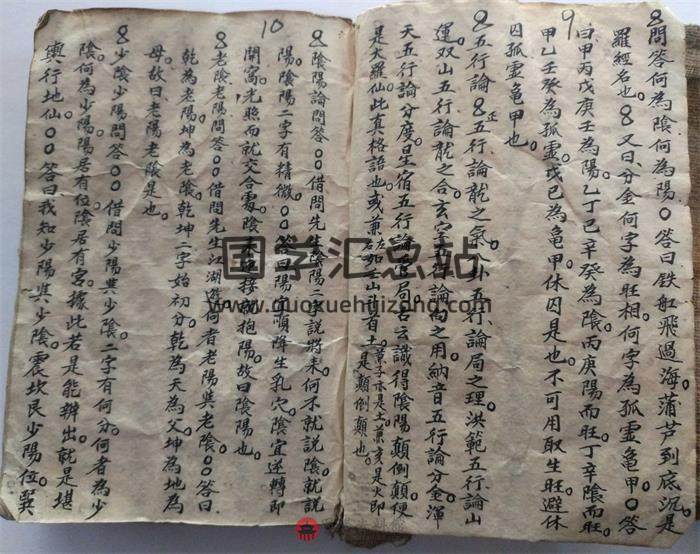 9
問答何為陰何為陽○答曰鉄船飛過海蒲芦到底沉是
羅經名也○又曰分金何字為旺相何字為孤霊亀甲○答
曰甲丙戊庚壬為陽乙丁己辛癸為陰丙庚陽而旺丁辛陰而旺
甲乙壬癸為孤霊戊己為亀甲休囚是也不可用取生旺避休
囚孤霊亀甲也
五行論 正五行論龍之氣八卦五行論局之理洪範五行論山
運双山五行論龍之合玄空五行論向之用納音五行論分金渾
天五行論分度星宿五行論
局
云識得陰陽顛倒顛便
是大羅仙此真格語也或兼左右
山
自土
章子本是土兼亥是火即
是顛倒顛也
10
陰陽論問答○○借問先生陰陽二字說將來何不就說陰就說
陽陰陽二字有精微○○答曰陽宜順降生乳穴陰宜逆轉即
開窩光照而就交合處陰
接
抱陽故曰陰陽也
老陰老陽問答○○借問先生江湖遊何者老陽與老陰○○答曰
乾為老陽坤為老陰乾坤二字始初分乾為天為父坤為地為
母故曰老陽老陰是也
少陰少陽問答○○借問少陽與少陰二字有何分何者為少
陰何為少陽陽居有位陰居有宮據此若是能辦出就是堪
輿行地仙○○答曰我知少陽與少陰震坎艮少陽位巽
国学汇总站
www.guoxuehuizong.com